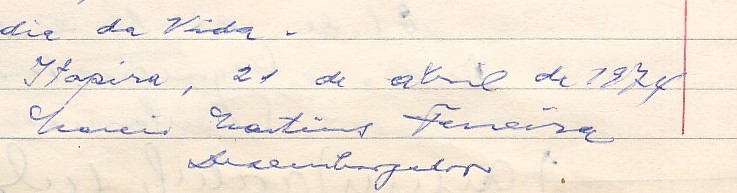 dia da Vida.
Itapira, 21 de abril de 1974
Marcio Martins Ferreira
Desembargador